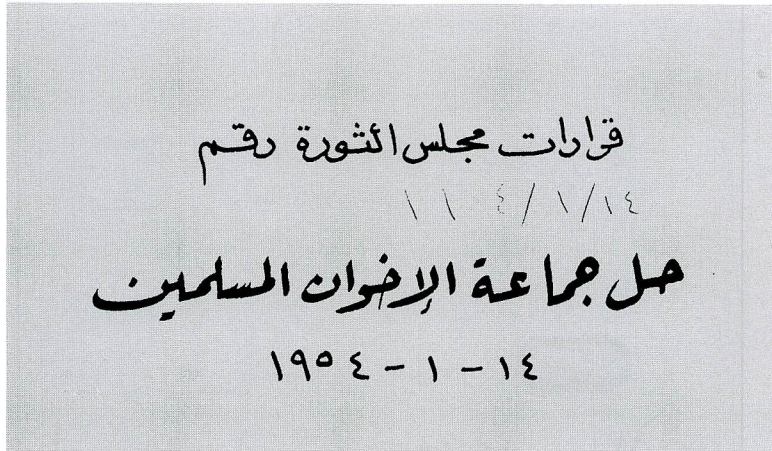 قرارات مجلس الثورة رقم
١٤/١/٤ ١١
حل جماعة الإخوان المسلمين
١٤ - ١ - ١٩٥٤